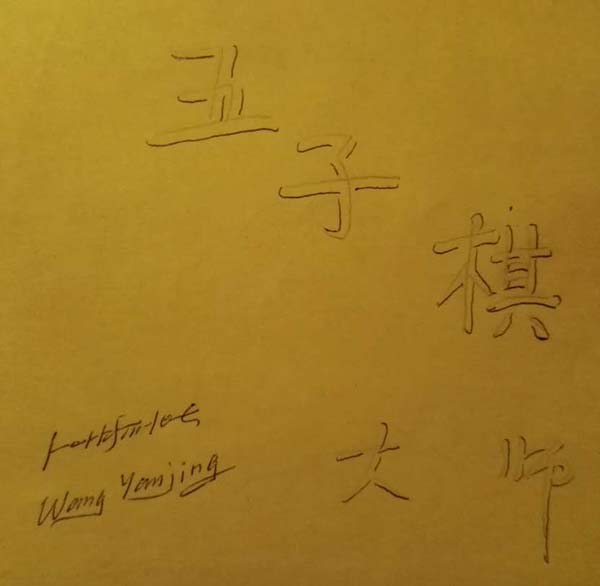 五子棋
大师
Wang Yanjing